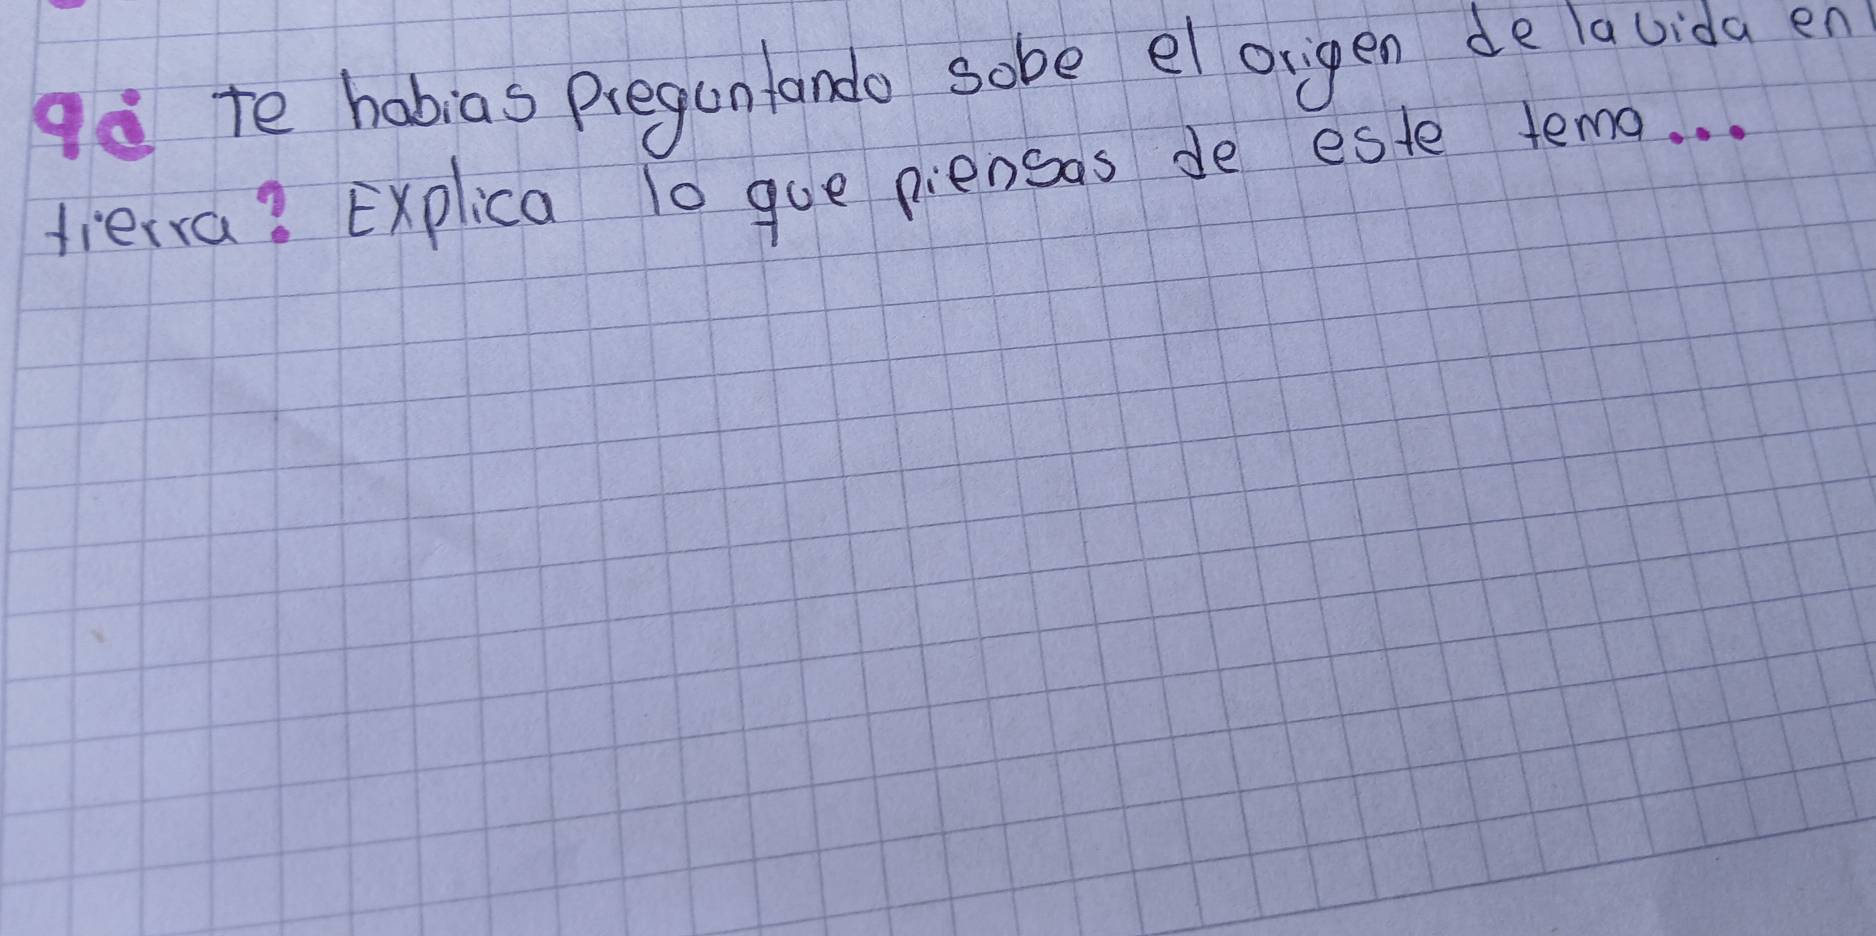 9¿ Te habias Preguntando sobe el origen de la vida en
tierra? Explica lo que piensas de este tema...